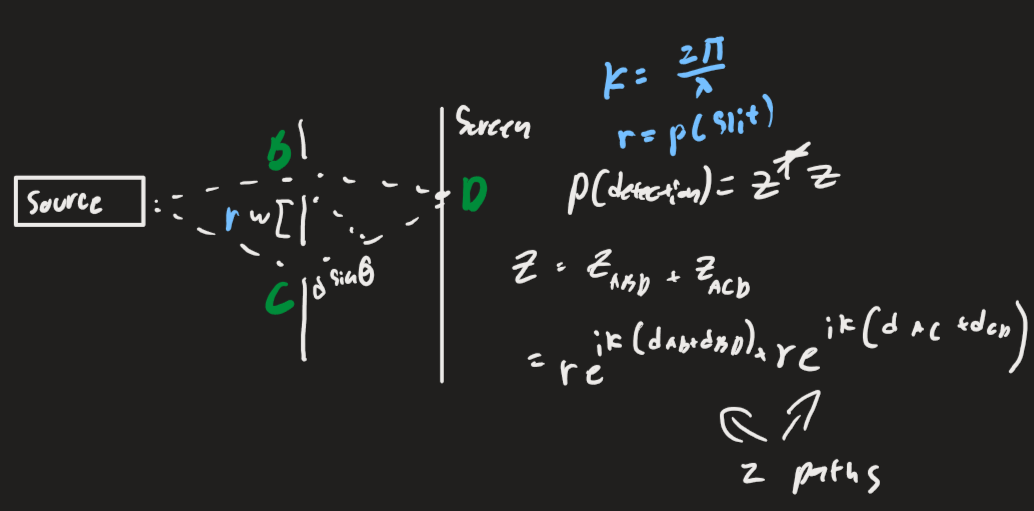 Source
B
r
w
C
d sinθ
Screen
D
k = 2π/λ
r = p(slit)
p(detection) = z* z
z = z_ABD + z_ACD
= re^{ik(d_AB+d_BD)} + re^{ik(d_AC+d_CD)}
2 paths